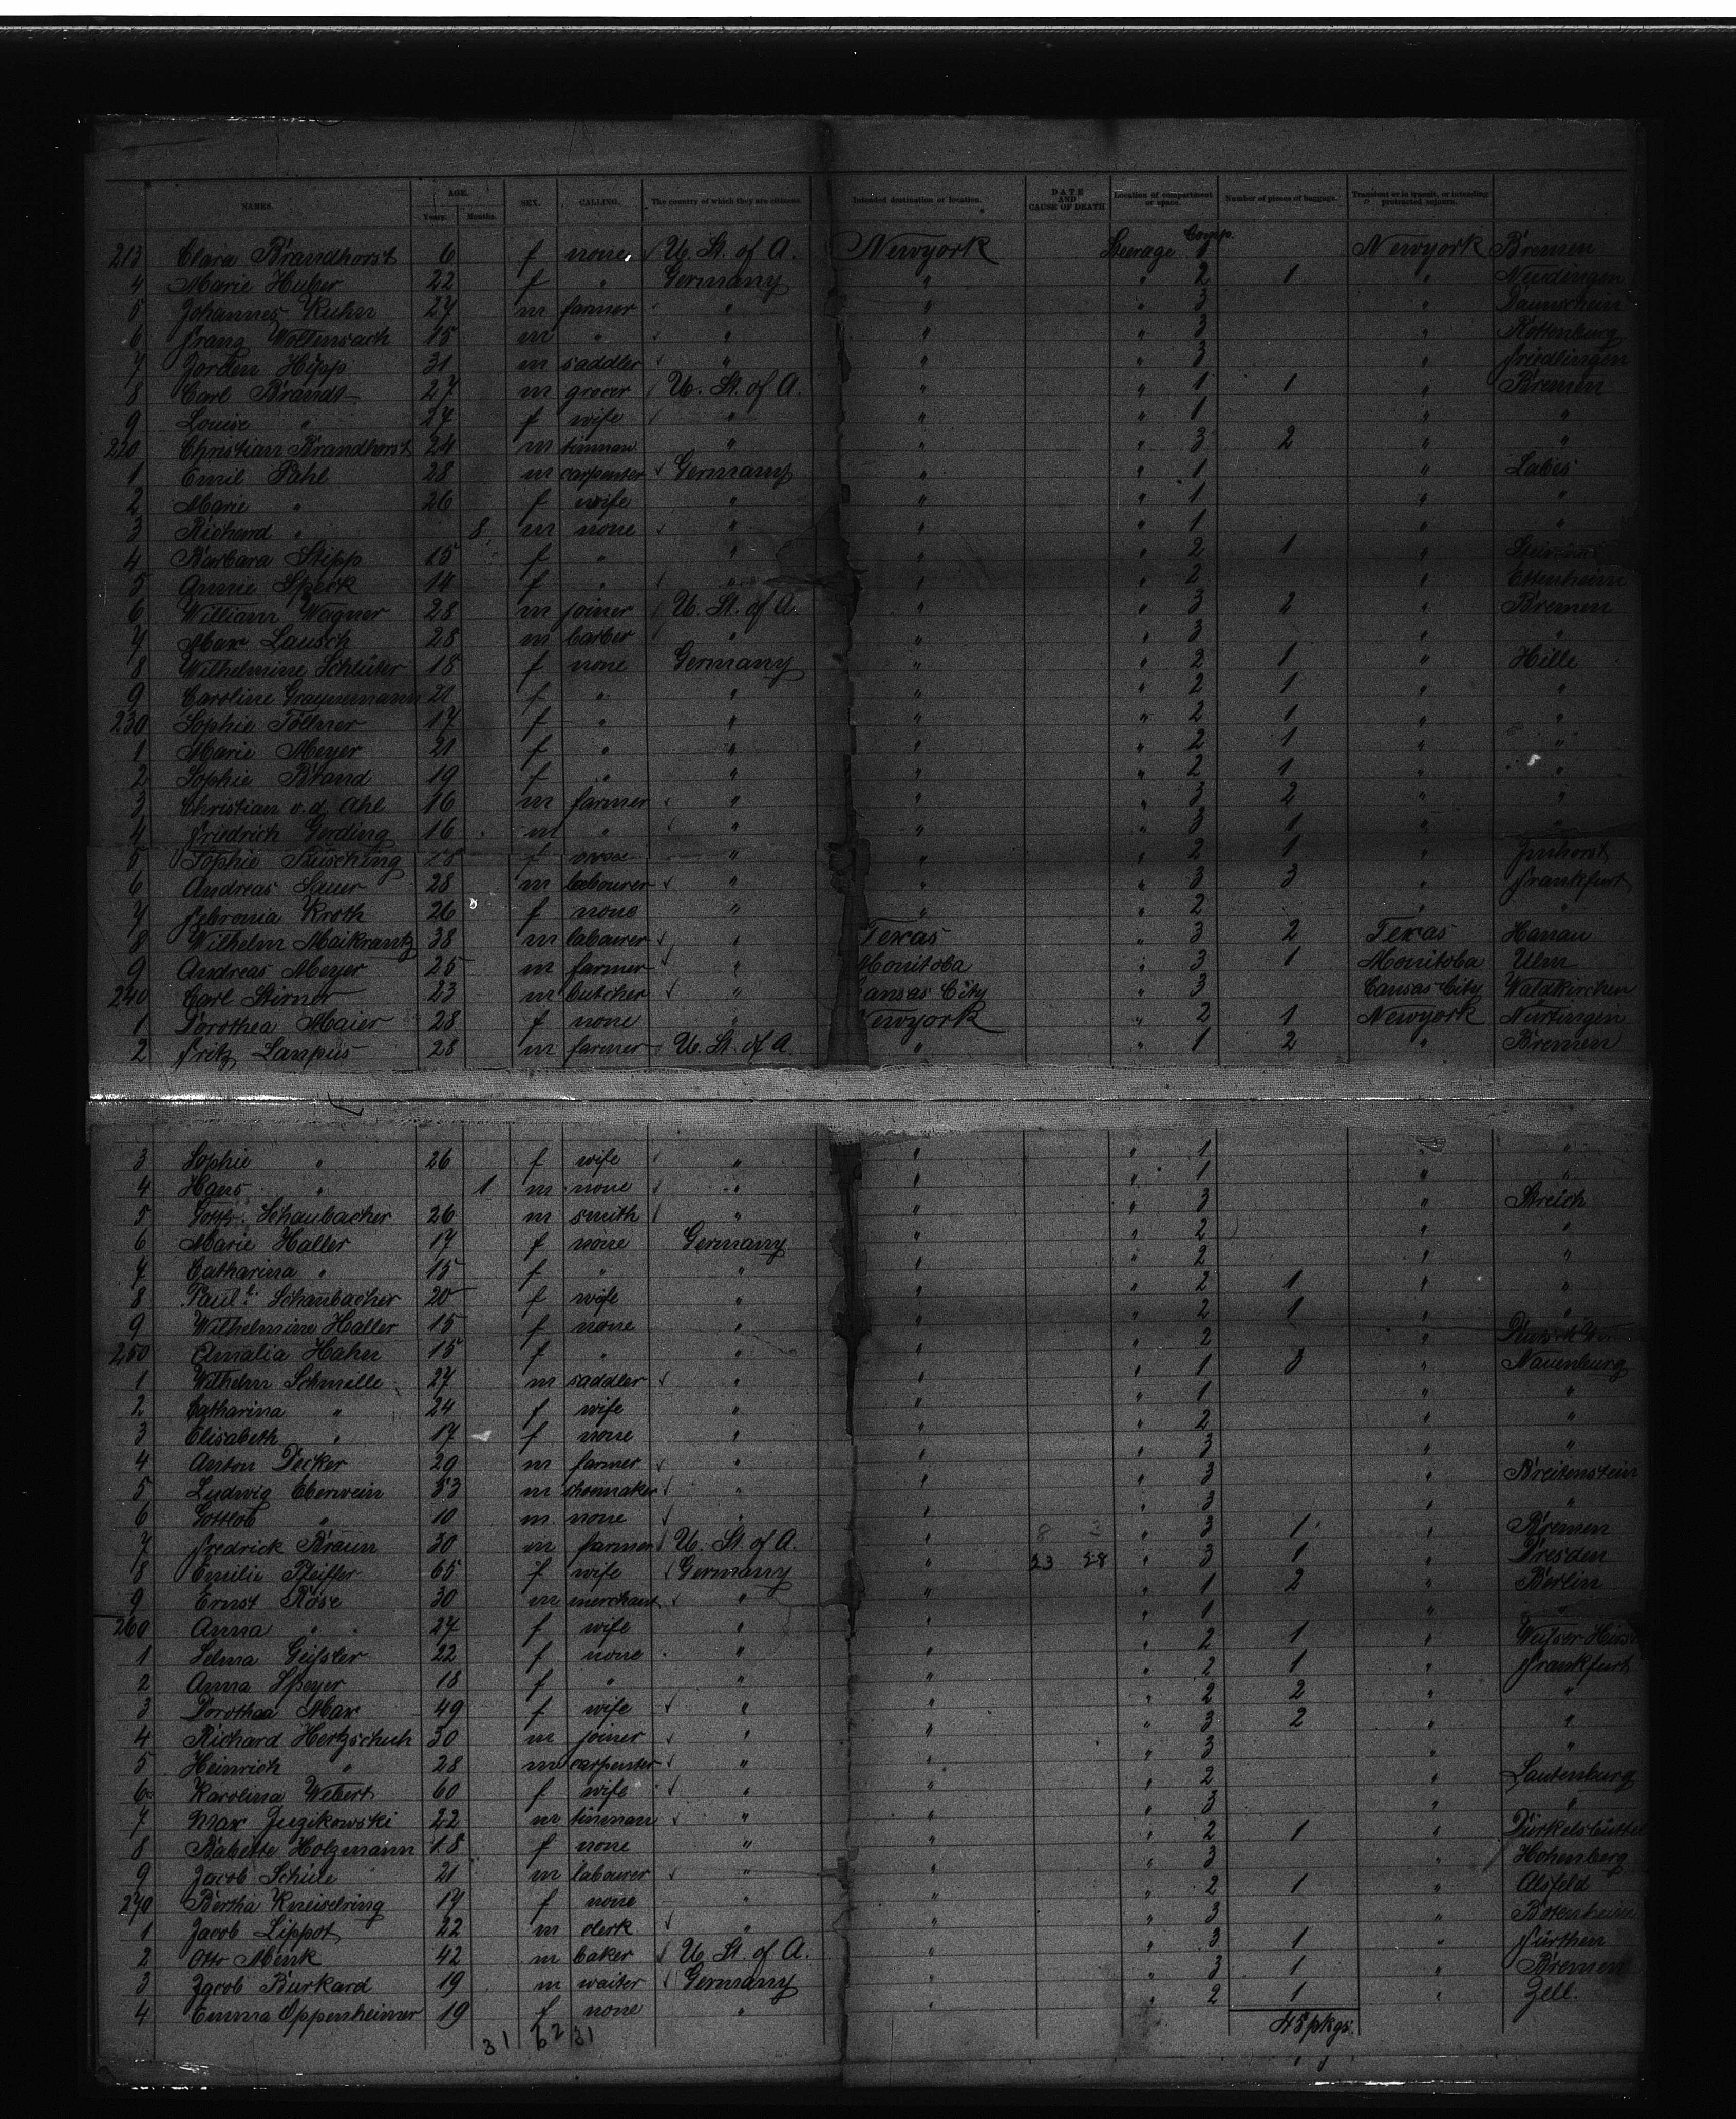 NAMES. AGE. Years. Months. SEX. CALLING. The country of which they are citizens. Intended destination or location. DATE AND CAUSE OF DEATH Location of compartment or space. Number of pieces of baggage. Transient or in transit, or intending protracted sojourn.
213 Clara Brandhorst 6 f none U. St. of A. Newyork Steerage Comp. 1 Newyork Bremen
4 Marie Huber 22 f " Germany " " 2 1 " Neudingen
5 Johannes Kuhn 27 m farmer " " " 3 "
6 Franz Woltensach 15 m " " " " 3 " Rottenburg
7 Jorden Hipp 31 m saddler " " " 3 " Friedlingen
8 Carl Brandt 27 m grocer U. St. of A. " " 1 1 " Bremen
9 Louise " 27 f wife " " " 1 " "
220 Christian Brandhorst 24 m tinman " " " 3 2 " "
1 Emil Pahl 28 m carpenter Germany " " 1 " Labes
2 Marie " 26 f wife " " " 1 " "
3 Richard " 8 m none " " " 1 " "
4 Barbara Stipp 15 f " " " " 2 1 "
5 Annie Speck 14 f " " " " 2 " Ettenheim
6 William Wagner 28 m joiner U. St. of A. " " 3 2 " Bremen
7 Max Lausch 28 m barber " " " 3 " "
8 Wilhelmine Schlüter 18 f none Germany " " 2 1 " Hille
9 Caroline Graunemann 21 f " " " " 2 1 " "
230 Sophie Tollner 17 f " " " " 2 1 " "
1 Marie Meyer 21 f " " " " 2 1 " "
2 Sophie Brand 19 f " " " " 2 1 " "
3 Christian v. d. Ahe 16 m farmer " " " 3 2 " "
4 Friedrich Gerding 16 m " " " " 3 1 " "
5 Sophie Büsching 18 f none " " " 2 1 "
6 Andreas Sauer 28 m labourer " " " 3 3 " Frankfurt
7 Febronia Kroth 26 f none " " " 2 " "
8 Wilhelm Maikrantz 38 m labourer " Texas " 3 2 Texas Hanau
9 Andreas Meyer 25 m farmer " Monitoba " 3 1 Monitoba Ulm
240 Carl Stirner 23 m butcher " Cansas City " 3 Cansas City Waldkirchen
1 Dorothea Maier 28 f none " Newyork " 2 1 Newyork Nürtingen
2 Fritz Lanpus 28 m farmer U. St. of A. " " 1 2 " Bremen
3 Sophie " 26 f wife " " " 1 " "
4 Hans " 1 m none " " " 1 " "
5 Gottfr. Schaubacher 26 m smith " " " 3 " Streich
6 Marie Haller 17 f none Germany " " 2 " "
7 Catharina " 15 f " " " " 2 " "
8 Paul. Schaubacher 20 f wife " " " 2 1 " "
9 Wilhelmine Haller 15 f none " " " 2 1 " "
250 Amalia Hahn 15 f " " " " 2 "
1 Wilhelm Schmelle 27 m saddler " " " 1 3 " Nauenburg
2 Catharina " 24 f wife " " " 1 " "
3 Elisabeth " 17 f none " " " 2 " "
4 Anton Decker 29 m farmer " " " 3 " "
5 Ludwig Eberwein 53 m shoemaker " " " 3 " Breitenstein
6 Gottlob " 10 m none " " " 3 " "
7 Fredrick Braun 30 m farmer U. St. of A. " 8 3 " 3 1 " Bremen
8 Emilie Pfeiffer 65 f wife Germany " 23 28 " 3 1 " Dresden
9 Ernst Röse 30 m merchant " " " 1 2 " Berlin
260 Anna " 27 f wife " " " 1 " "
1 Selma Geißler 22 f none " " " 2 1 " Weißer Hirsch
2 Anna Speyer 18 f " " " " 2 1 " Frankfurt
3 Dorothea Max 49 f wife " " " 2 2 " "
4 Richard Hertzschuh 30 m joiner " " " 3 2 " "
5 Heinrich " 28 m carpenter " " " 3 " "
6 Karolina Webert 60 f wife " " " 2 " Lautenburg
7 Max Juzikowski 22 m tinman " " " 3 " "
8 Babette Holzmann 18 f none " " " 2 1 " Dürkelsbüttel
9 Jacob Schüle 21 m labourer " " " 3 " Hohenberg
270 Bertha Kneiselring 17 f none " " " 2 1 " Alsfeld
1 Jacob Lippot 22 m clerk " " " 3 " Botenheim
2 Otto Menk 42 m baker U. St. of A. " " 3 1 " Fürthen
3 Jacob Burkard 19 m waiter Germany " " 3 1 " Bremen
4 Emma Oppenheimer 19 f none " " " 2 1 " Zell.
31 62 31 45 pkgs.